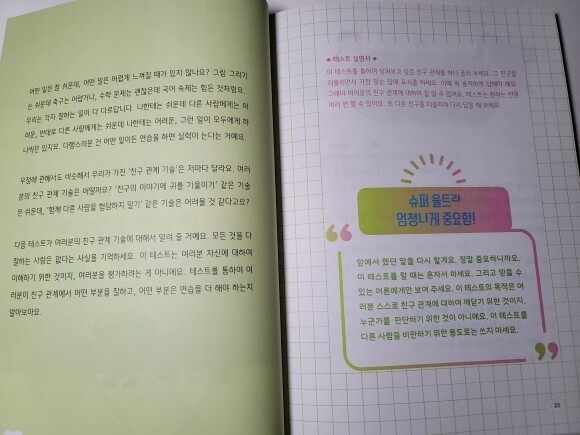 어떤 일은 참 쉬운데, 어떤 일은 어렵게 느껴질 때가 있지 않나요? 그림 그리기
는 쉬운데 축구는 어렵거나, 수학 문제는 괜찮은데 국어 숙제는 힘든 것처럼요.
우리는 각자 잘하는 일이 다 다르답니다. 나한테는 쉬운데 다른 사람에게는 어
려운, 반대로 다른 사람에게는 쉬운데 나한테는 어려운, 그런 일이 모두에게 하
나씩은 있지요. 다행스러운 건 어떤 일이든 연습을 하면 실력이 는다는 거예요.
우정에 관해서도 비슷해서 우리가 가진 '친구 관계 기술'은 저마다 달라요. 여러
분의 친구 관계 기술은 어떨까요? '친구의 이야기에 귀를 기울이기' 같은 기술
은 쉬운데, '함께 다른 사람을 험담하지 말기' 같은 기술은 어려울 것 같다고요?
다음 테스트가 여러분의 친구 관계 기술에 대해서 알려 줄 거예요. 모든 것을 다
잘하는 사람은 없다는 사실을 기억하세요. 이 테스트는 여러분 자신에 대하여
이해하기 위한 것이지, 여러분을 평가하려는 게 아니에요. 테스트를 통하여 여
러분이 친구 관계에서 어떤 부분을 잘하고, 어떤 부분은 연습을 더 해야 하는지
알아보아요.
★ 테스트 설명서 ★
이 테스트를 통하여 살펴보고 싶은 친구 관계를 하나 골라 보세요. 그 친구를
떠올리면서 가장 맞는 답에 표시를 하세요. 이때 꼭 솔직하게 답해야 해요.
그래야 여러분의 친구 관계에 대하여 잘 알 수 있어요. 테스트는 원하는 만큼
여러 번 할 수 있어요. 또 다른 친구를 떠올리며 다시 답을 해 보세요.
슈퍼 울트라
엄청나게 중요함!
앞에서 했던 말을 다시 할게요. 정말 중요하니까요.
이 테스트를 할 때는 혼자서 하세요. 그리고 믿을 수
있는 어른에게만 보여 주세요. 이 테스트의 목적은 여
러분 스스로 친구 관계에 대하여 깨닫기 위한 것이지,
누군가를 판단하기 위한 것이 아니에요. 이 테스트를
다른 사람을 비판하기 위한 용도로는 쓰지 마세요.